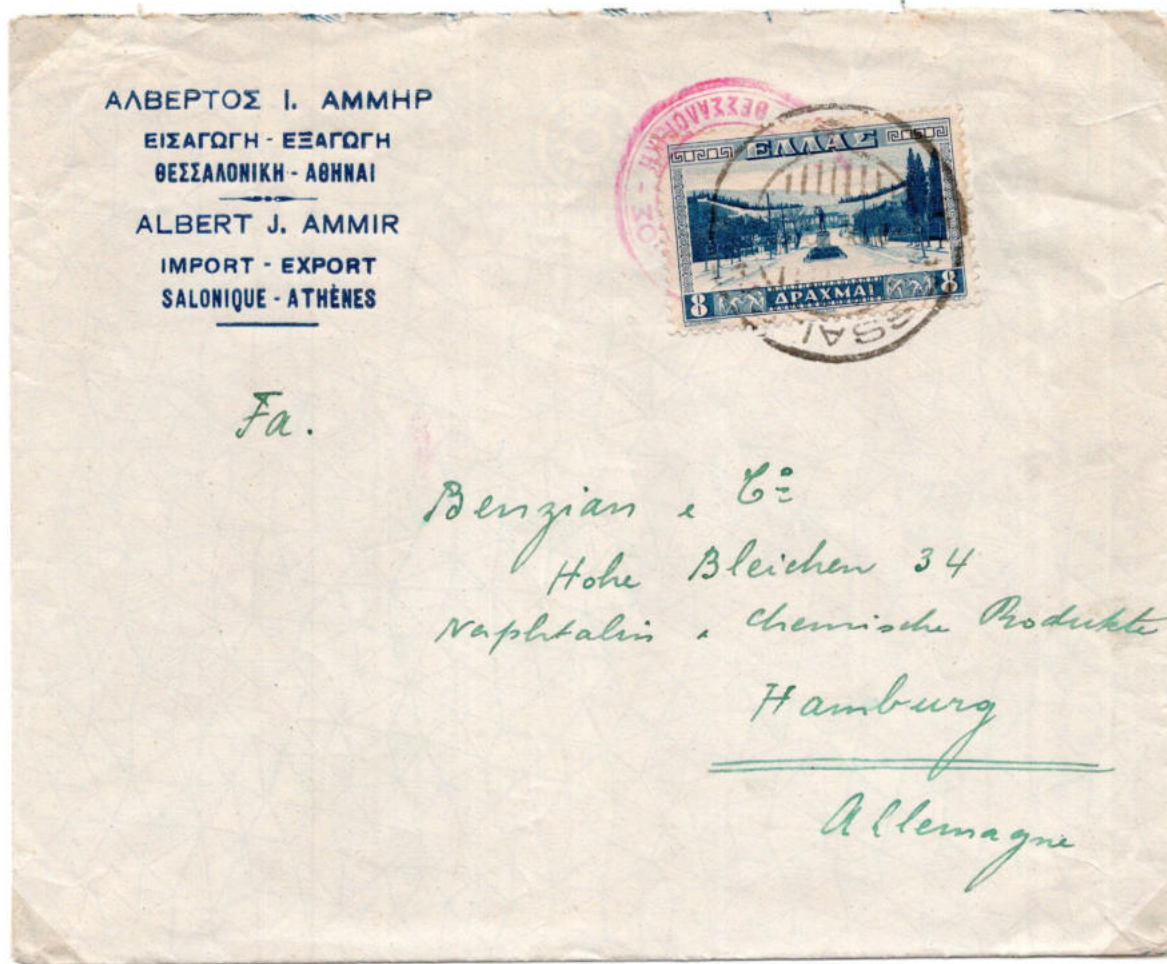 ΑΛΒΕΡΤΟΣ Ι. ΑΜΜΗΡ
ΕΙΣΑΓΩΓΗ - ΕΞΑΓΩΓΗ
ΘΕΣΣΑΛΟΝΙΚΗ - ΑΘΗΝΑΙ
ALBERT J. AMMIR
IMPORT - EXPORT
SALONIQUE - ATHÈNES
ΘΕΣΣΑΛΟΝΙΚΗ
ΕΛΛΑΣ
8 ΔΡΑΧΜΑΙ 8
Fa.
Benzian & Cº
Hohe Bleichen 34
Naphtalin & chemische Produkte
Hamburg
Allemagne